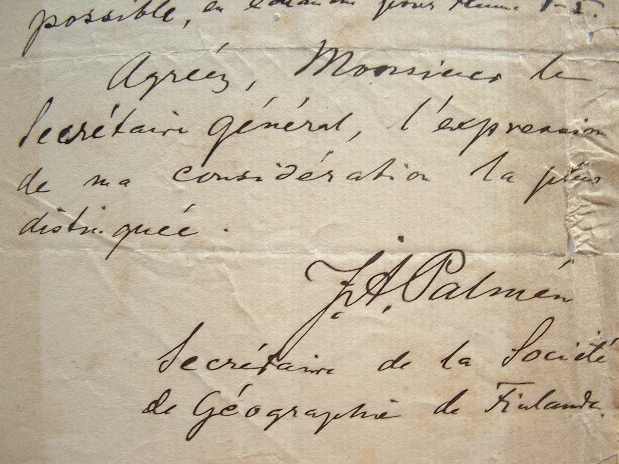 possible, en échange pour
Agréez, Monsieur le
Secrétaire général, l'expression
de ma considération la plus
distinguée.
J. A. Palmén
Secrétaire de la Société
de Géographie de Finlande.